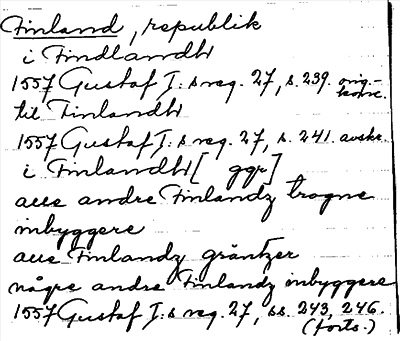 Finland, republik
i Findlandh
1557 Gustaf I:s reg. 27, s. 239. orig.-
konc.
til Finlandh
1557 Gustaf I:s reg. 27, s. 241. avskr.
i Finlandh [ ggr]
aue andre Finlandz trogne
inbyggere
aue Finlandz gräntzer
någre andre Finlandz inbyggere
1557 Gustaf I:s reg. 27, ss. 243, 246.
(forts.)